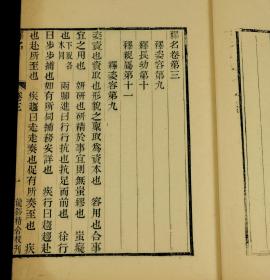 釋名卷第三
釋姿容第九
釋長幼第十
釋親屬第十一
釋姿容第九
姿資也資取也形貌之稟取爲資本也 容用也合事
宜之用也 妍研也研精於事宜則無蚩繆也 蚩癡
也 兩脚進曰行行抗也抗足而前也 徐行
曰步步捕也如有所伺捕務安詳也 疾行曰趨趨赴
也赴所至也 疾趨曰走走奏也促有所奏至也